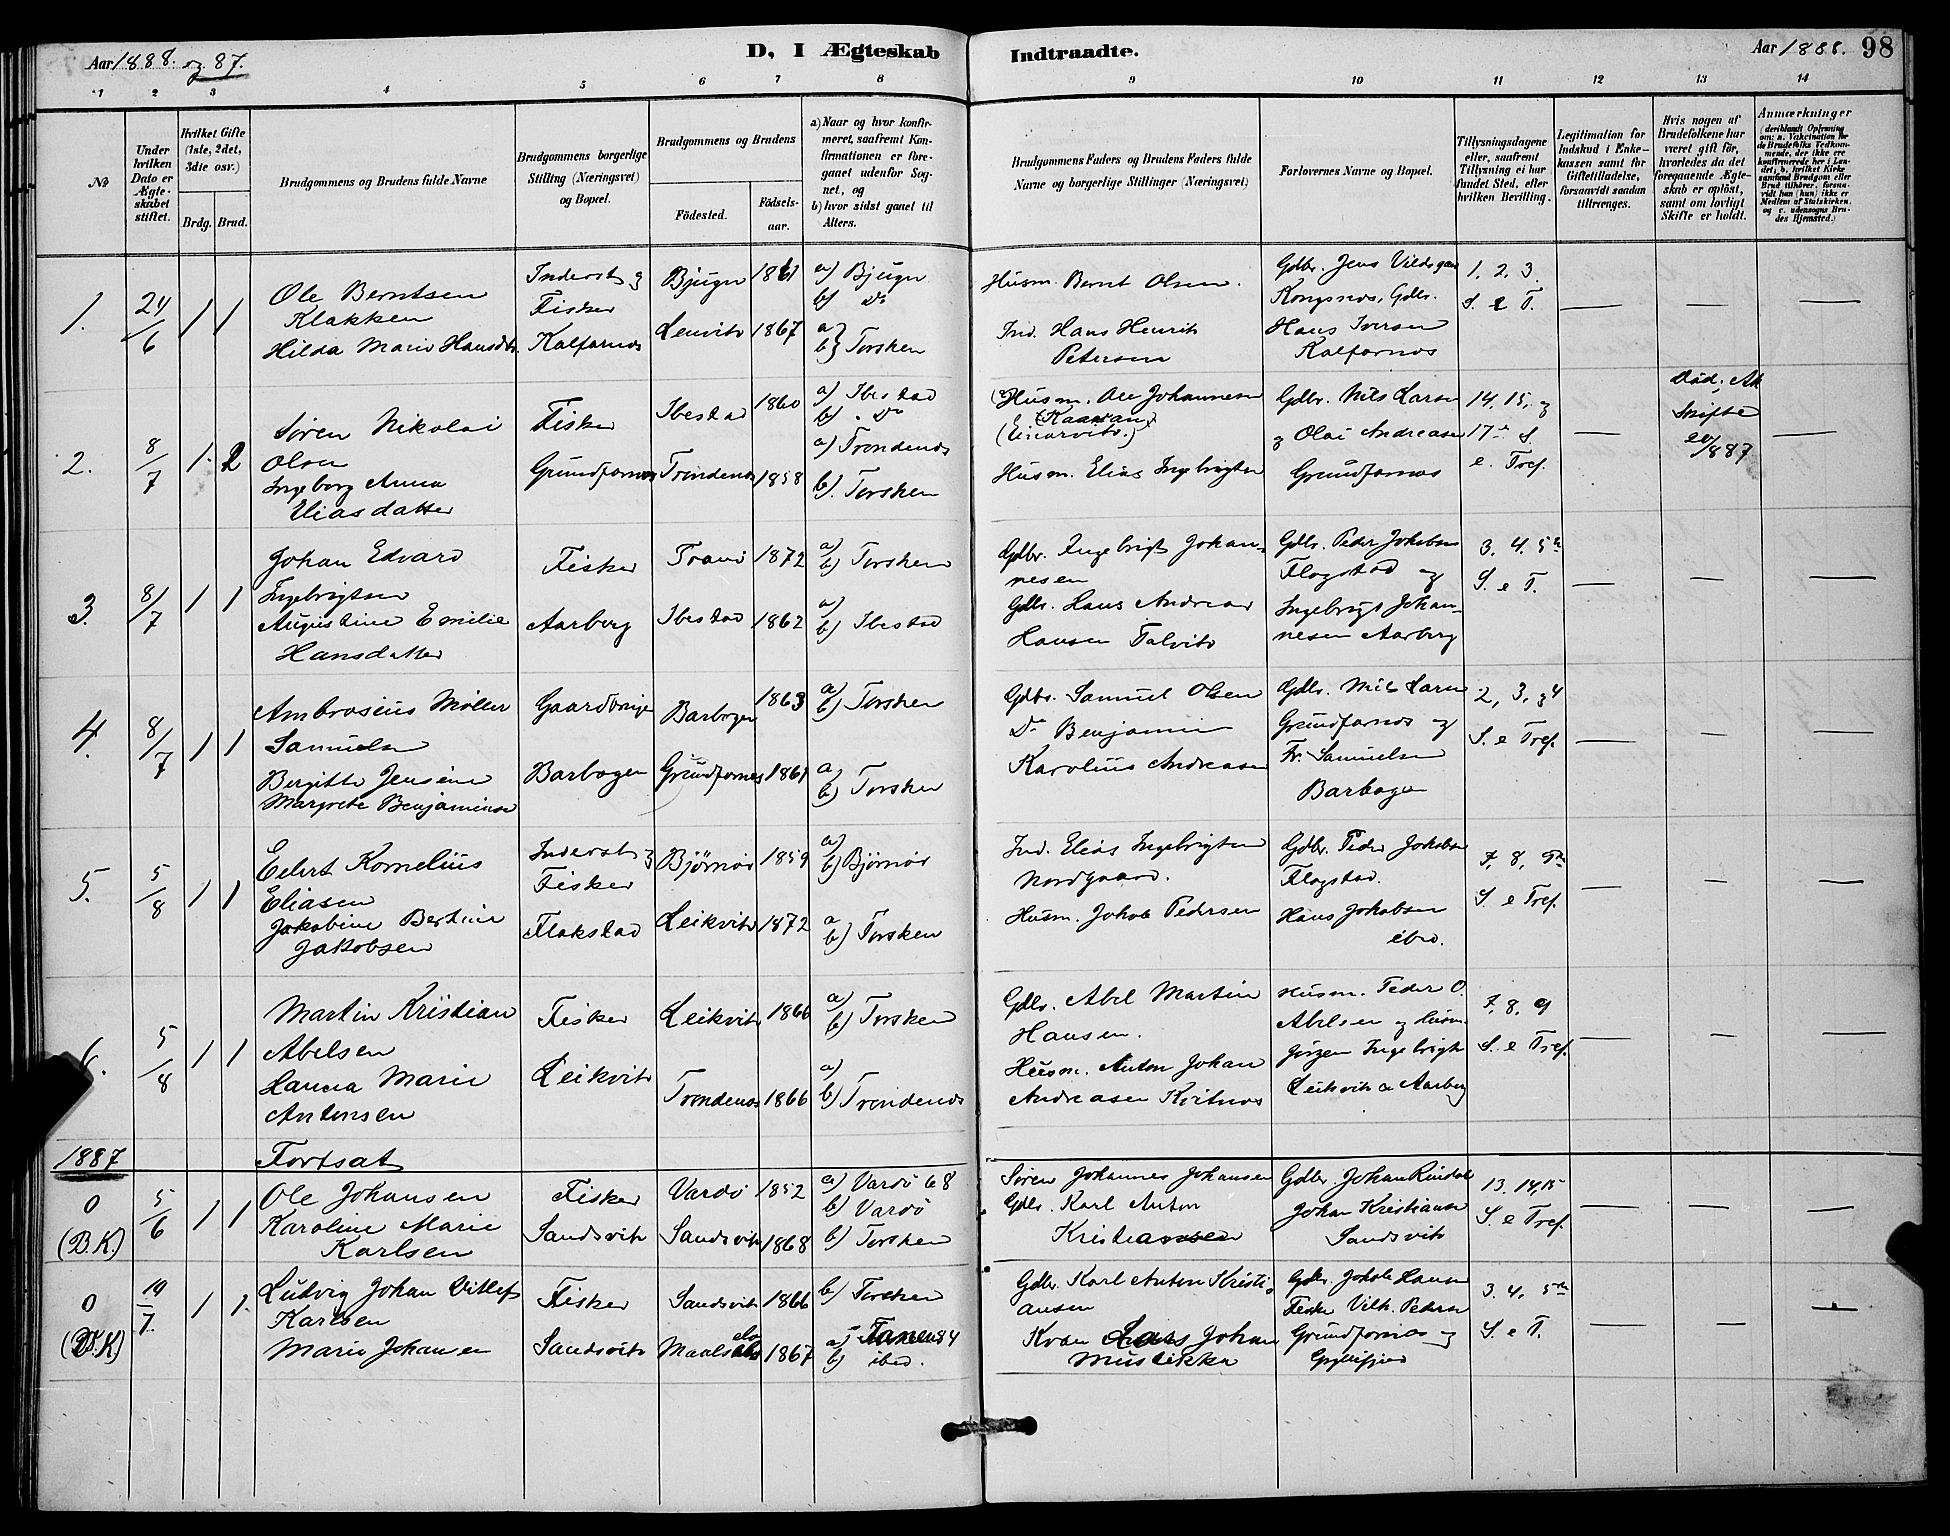 Aar 1888. og 87.
D, I Ægteskab Indtraadte.
Aar 1888. 98
1 2 3 4 5 6 7 8 9 10 11 12 13 14
№
Under hvilken Dato er Ægteskabet stiftet.
Hvilket Gifte (1ste, 2det, 3die osv.)
Brdg. Brud.
Brudgommens og Brudens fulde Navne
Brudgommens borgerlige Stilling (Næringsvei) og Bopæl.
Brudgommens og Brudens
Fødested. Fødselsaar.
a) Naar og hvor konfirmeret, saafremt Konfirmationen er foregaaet udenfor Sognet, og
b) hvor sidst gaaet til Alters.
Brudgommens Faders og Brudens Faders fulde Navne og borgerlige Stillinger (Næringsvei)
Forlovernes Navne og Bopæl.
Tillysningsdagene eller, saafremt Tillysning ei har fundet Sted, efter hvilken Bevilling.
Legitimation for Indskud i Enkekassen samt for Giftetilladelse, forsaavidt saadan tiltrænges.
Hvis nogen af Brudefolkene har været gift før, hvorledes da det foregaaende Ægteskab er opløst, samt om lovligt Skifte er holdt.
Anmærkninger
(deriblandt Oplysning om: a. Vakcination for de Brudefolks Vedkommende, der ikke ere konfirmerede her i Landet; b. hvilket Kirkesamfund Brudgom eller Brud tilhører, forsaavidt han (hun) ikke er Medlem af Statskirken, og c. udensogns Brudes Hjemsted.)
1. 24/6 1 1
Ole Berntsen
Klakken
Hilda Marie Hansdtr.
Inderst og
Fisker
Kalfarnes
Bjugn 1861
Lenvik 1867
a) Bjugn
b) Do
a) b) Torsken
Husm. Bernt Olsen.
Ind. Hans Henrik
Petersen
Gdbr. Jens Vilds
Kongsnes, Gdbr.
Hans Iversen
Kalfarnes
1, 2, 3.
S. e T.
2. 8/7 1. 2
Søren Nikolai
Olsen
Ingeborg Anna
Eliasdatter
Fisker
Grundfarnes
Ibestad 1860
Trondenes 1858
a) Ibestad
b) Do
a) Trondenes
b). Torsken
Husm. Ole Johannesen
(Einarvik.)
Husm. Elias Ingebrigtsen
Gdbr. Nils Larsen
og Olai Andreasen
Grundfarnes
14, 15, og
17de S.
e. Tref.
Død, Att
Skifte
/887
3. 8/7 1 1
Johan Edvard
Ingebrigtsen
Augustine Emilie
Hansdatter
Fisker
Aarberg
Tranø 1872
Ibestad 1862
a) b) Torsken
a) b) Ibestad
Gdbr. Ingebrigt Johan-
nesen
Gdbr. Hans Andreas
Hansen Talvik
Gdbr. Peder Jakobsen
Flagstad og
Ingebrigt Johan-
nesen Aarberg
3. 4. 5te
S. e T.
4. 8/7 1 1
Ambrosius Møller
Samuelsen
Bergitte Jensine
Margrete Benjaminsen
Gaardbruger
Barbogen
Barbogen 1863
Grundfarnes 1861
a) b) Torsken
a) b) Torsken
Gdbr. Samuel Olsen
Do Benjamin
Karolius Andreasen
Gdbr. Nils Larsen
Grundfarnes og
Fr. Samuelsen
Barbogen
2, 3, og 4
S. e Tref.
5. 5/8 1 1
Edert Kornelius
Eliasen
Jakobine Bertine
Jakobsen
Inderst og
Fisker
Flakstad
Bjørnør 1859
Leikvik 1872
a) b) Bjørnør
a) b) Torsken
Ind. Elias Ingebrigtsen
Nordgaard.
Husm. Jakob Pedersen
Gdbr. Peder Jakobsen
Flagstad.
Hans Jakobsen
ibid.
7, 8, 9de
S. e Tref.
6. 5/8 1 1
Martin Kristian
Abelsen
Hanna Marie
Antonsen
Fisker
Leikvik
Leikvik 1866
Trondenes 1866
a) b) Torsken
a) b) Trondenes
Gdbr. Abel Martin
Hansen.
Husm. Anton Johan
Andreasen Kvitnes
Husm. Peder O.
Abelsen og Husm.
Jørgen Ingebrigts
Leikvik og Aarberg
7, 8, 9
S. e Tref.
1887 Fortsat
0 (B.K.) 5/6 1 1
Ole Johansen
Karoline Marie
Karlsen
Fisker
Sandsvik
Vardø 1852
Sandsvik 1868
a) Vardø 68
b) Vardø
b) Torsken
Søren Johannes Johansen
Gdbr. Karl Anton
Kristiansen
Gdbr. Johan Rindal
Johan Kristiansen
Sandsvik
13. 14, 15
S. e Tref.
0 (B.K) 10/7. 1 1.
Ludvig Johan Ditlef
Karlsen
Marie Johansen
Fisker
Sandsvik
Sandsvik 1866
Maalselv 1867
b) Torsken
a) Tanen 84
b) ibid.
Gdbr. Karl Anton Kristi-
ansen
Kvæn Lars Johan
Mustikka
Gdbr. Jakob Hansen
Fisker Vilh. Pedersen
Grundfarnes og
Gryllefjord
3. 4, 5te
S. e T.